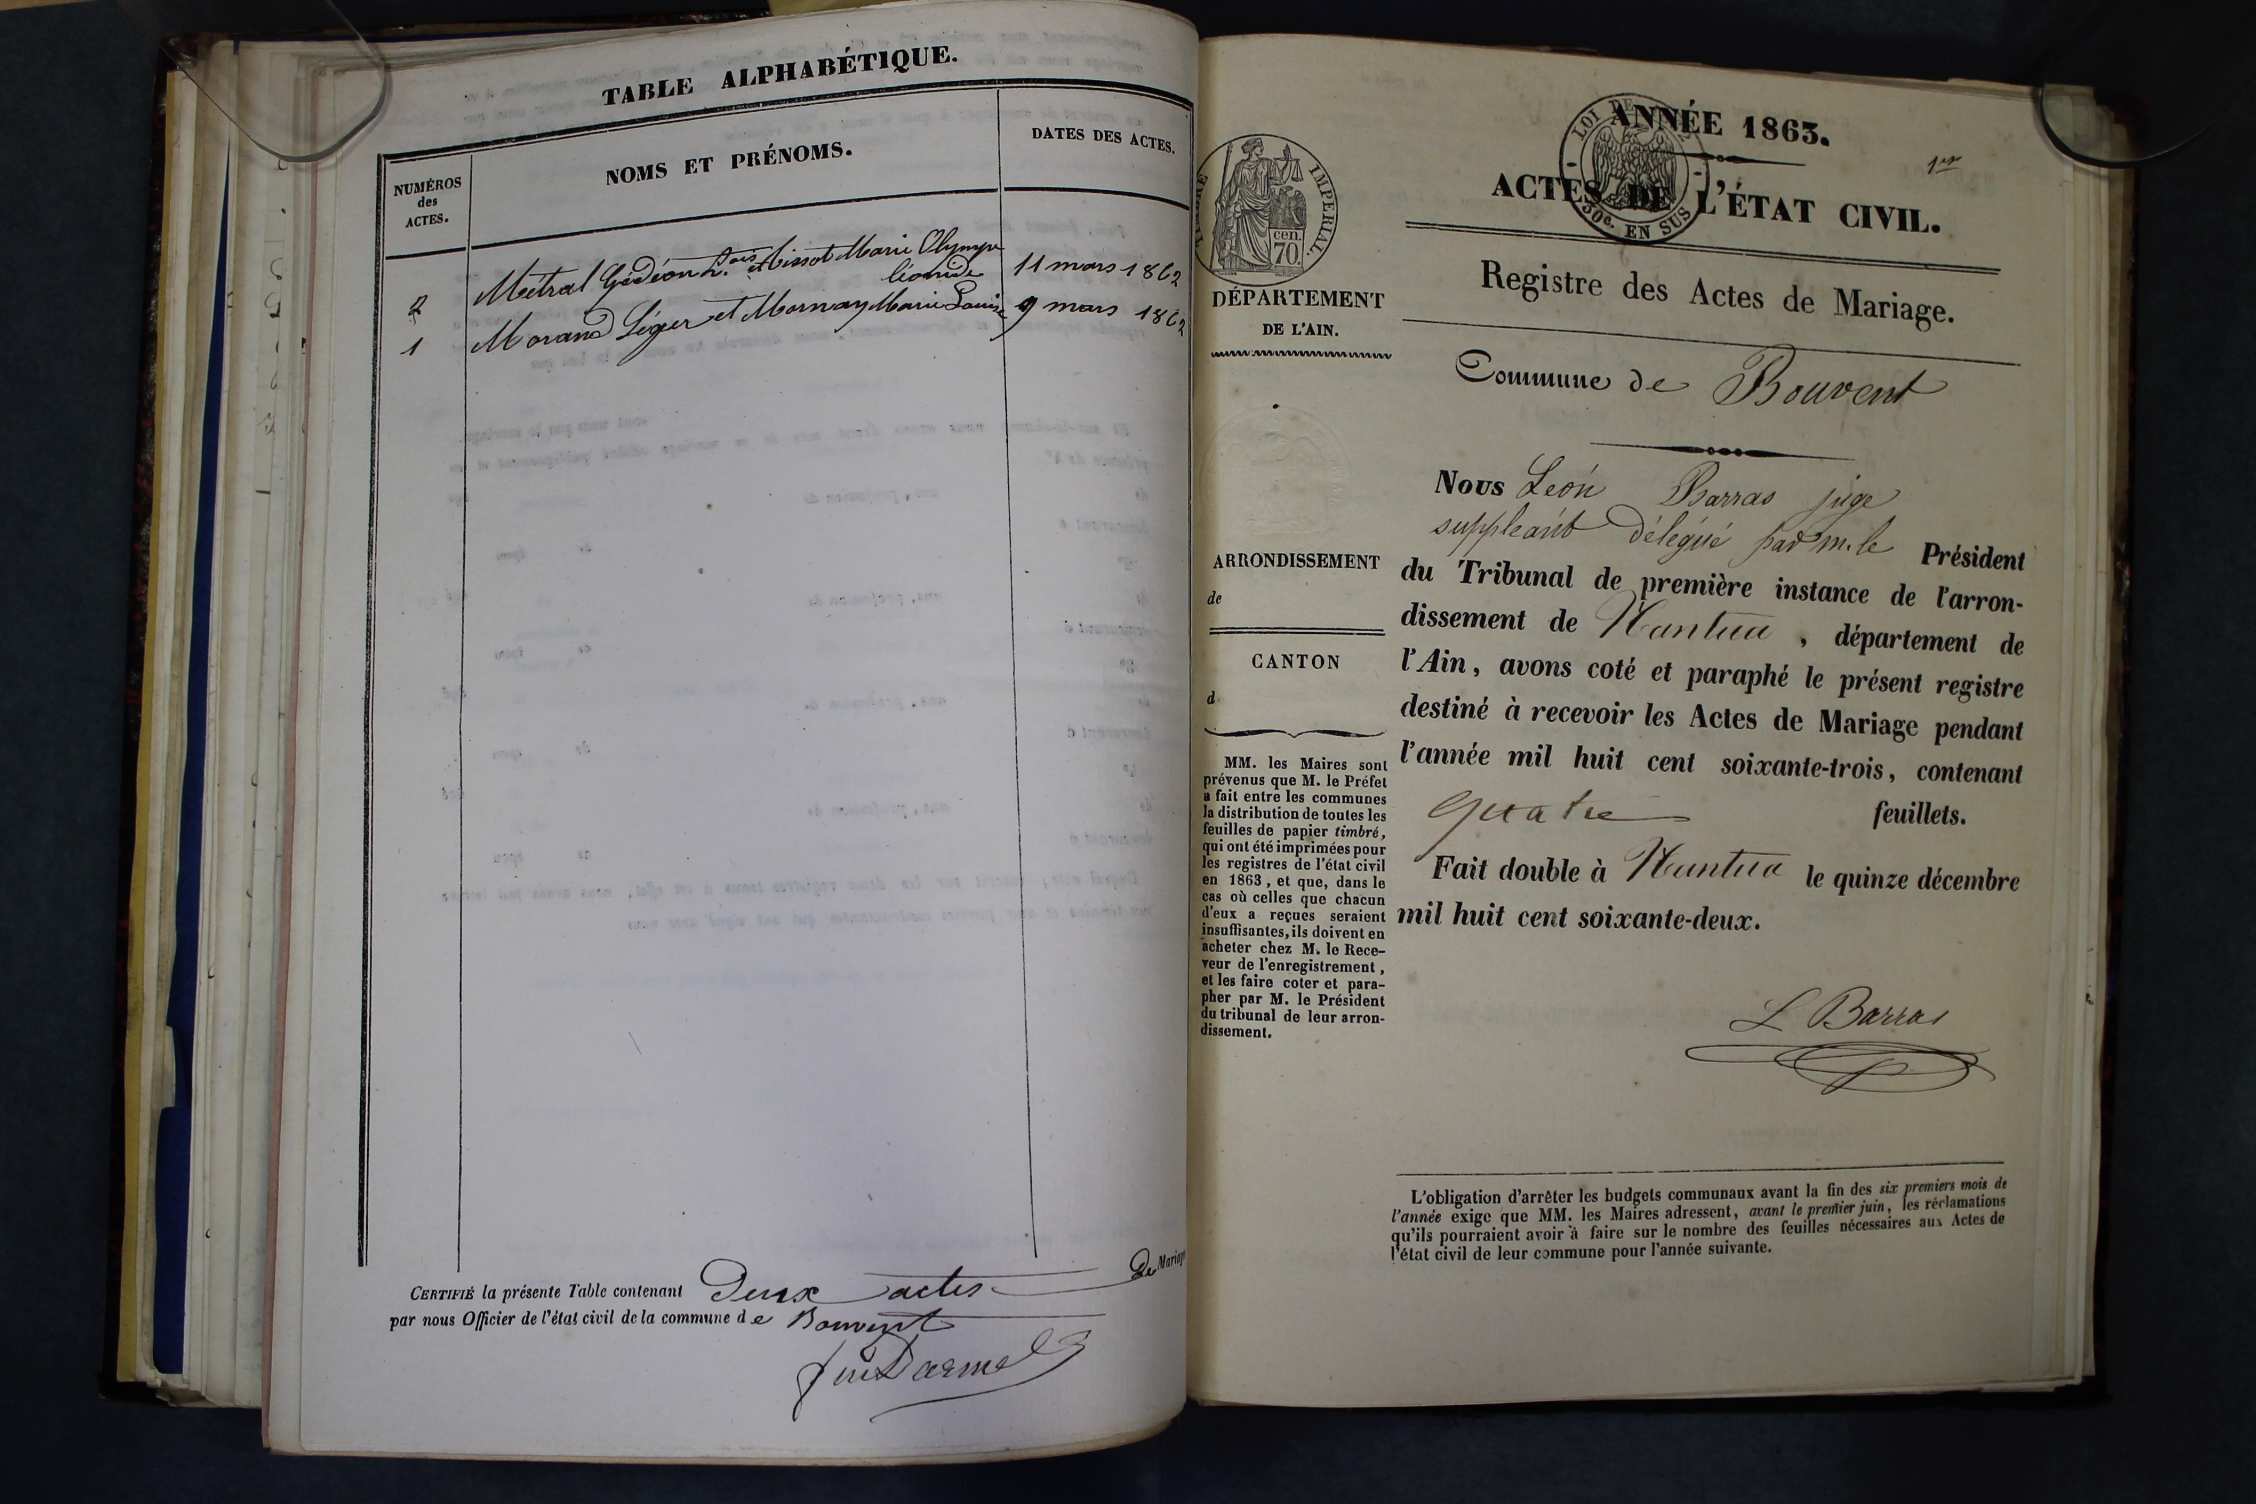 TABLE ALPHABÉTIQUE.
NUMÉROS
des
ACTES.
NOMS ET PRÉNOMS.
DATES DES ACTES.
2 Métral Gédéon L.ois et Marie Olympe 11 mars 1862
léonide
1 Morand Léger et Mornay Marie Louise 9 mars 1862
CERTIFIÉ la présente Table contenant Deux actes de Mariage
par nous Officier de l'état civil de la commune de Bouvent
ANNÉE 1863.
1er
ACTES DE L'ÉTAT CIVIL.
LOI DE
50c. EN SUS
TIMBRE IMPERIAL.
cen.
70.
Registre des Actes de Mariage.
DÉPARTEMENT
DE L'AIN.
Commune de Bouvent
ARRONDISSEMENT
de
CANTON
d
MM. les Maires sont
prévenus que M. le Préfet
a fait entre les communes
la distribution de toutes les
feuilles de papier timbré,
qui ont été imprimées pour
les registres de l'état civil
en 1863, et que, dans le
cas où celles que chacun
d'eux a reçues seraient
insuffisantes, ils doivent en
acheter chez M. le Rece-
veur de l'enregistrement,
et les faire coter et para-
pher par M. le Président
du tribunal de leur arron-
dissement.
Nous Léon Barras juge
suppléant délégué par m. le Président
du Tribunal de première instance de l'arron-
dissement de Nantua, département de
l'Ain, avons coté et paraphé le présent registre
destiné à recevoir les Actes de Mariage pendant
l'année mil huit cent soixante-trois, contenant
quatre feuillets.
Fait double à Nantua le quinze décembre
mil huit cent soixante-deux.
L Barras
L'obligation d'arrêter les budgets communaux avant la fin des six premiers mois de
l'année exige que MM. les Maires adressent, avant le premier juin, les réclamations
qu'ils pourraient avoir à faire sur le nombre des feuilles nécessaires aux Actes de
l'état civil de leur commune pour l'année suivante.